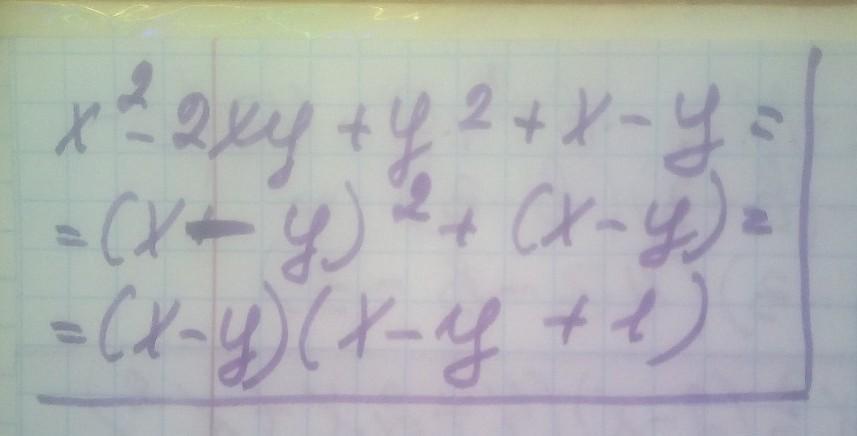 x² - 2xy + y² + x - y =
= (x - y)² + (x - y) =
= (x - y)(x - y + 1)